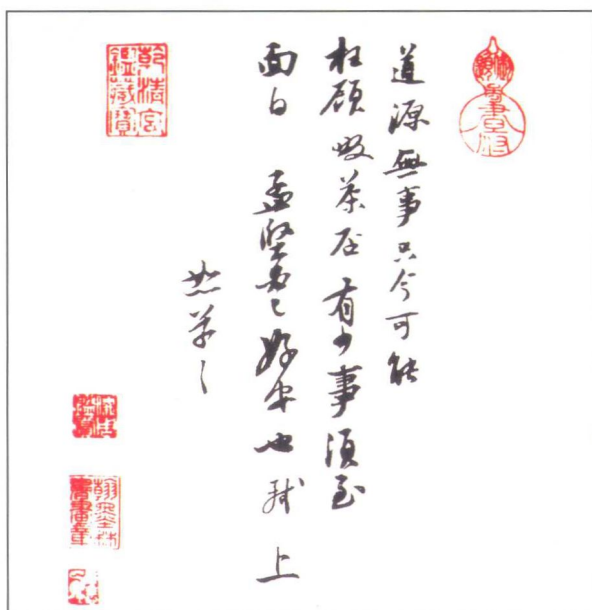 道源無事只今可能
枉顧啜茶否有少事須至
面白 孟堅必已好安也 軾上
恕草〻
乾清宮
鑑藏寶